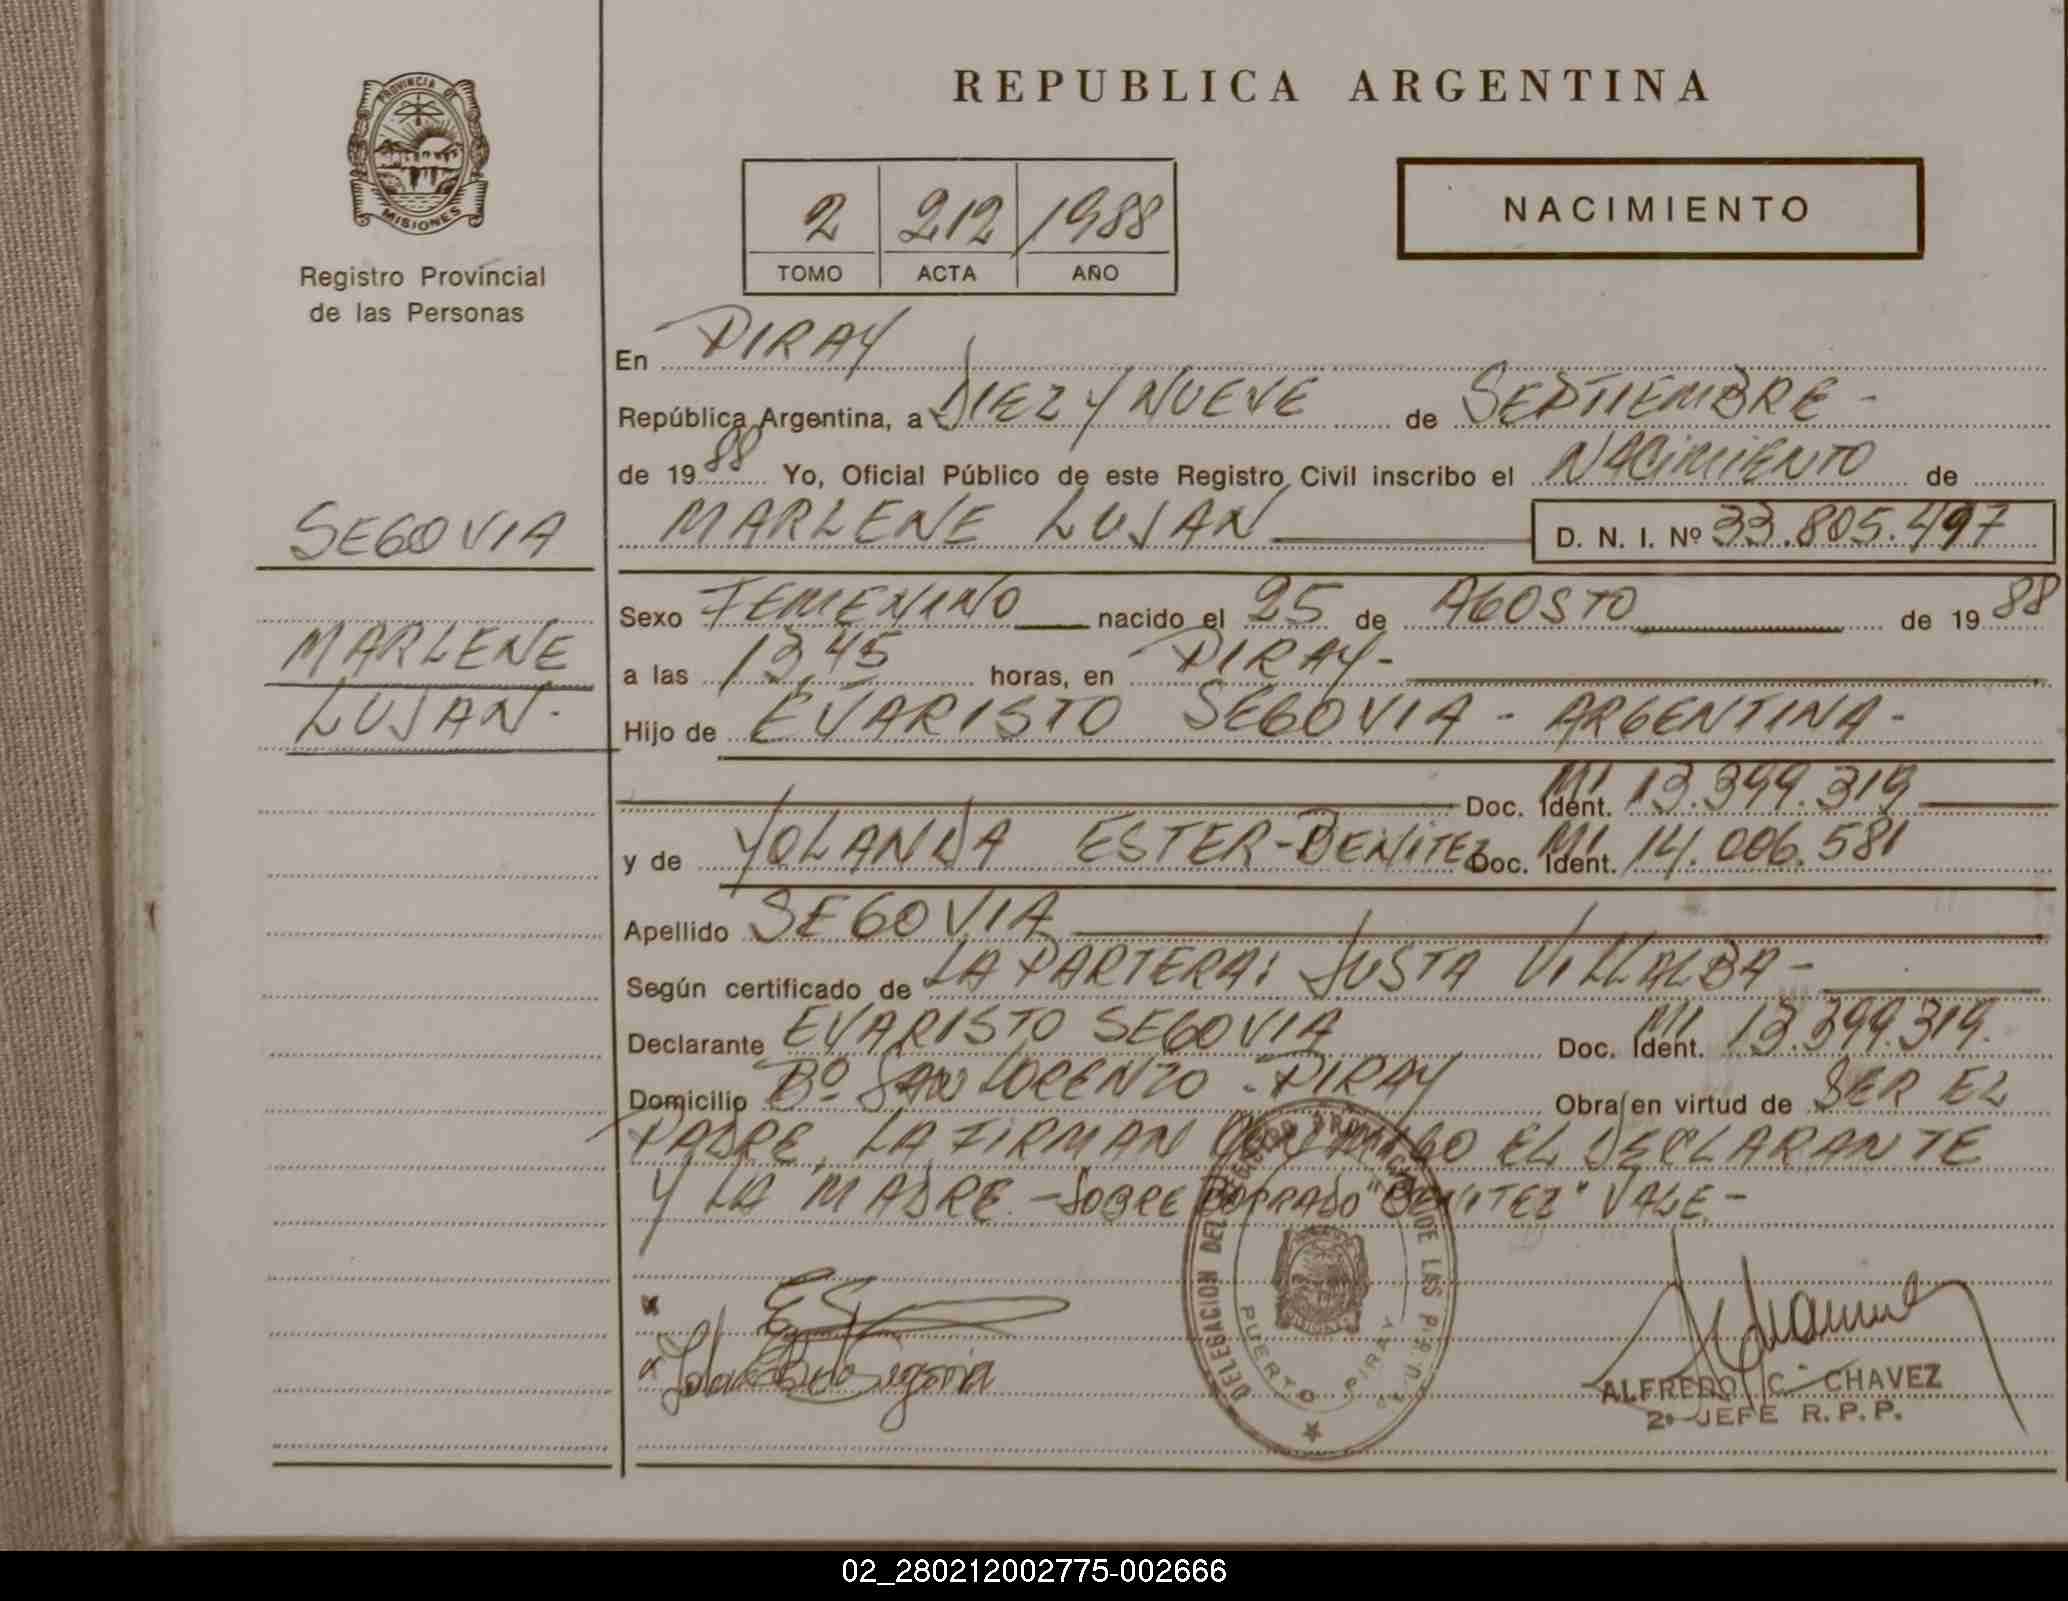 PROVINCIA DE
MISIONES
Registro Provincial
de las Personas
SEGOVIA
MARLENE
LUJAN.
REPUBLICA ARGENTINA
2 212 1988
TOMO ACTA AÑO
NACIMIENTO
En PIRAY
República Argentina, a DIEZ Y NUEVE de SEPTIEMBRE -
de 19 88 Yo, Oficial Público de este Registro Civil inscribo el NACIMIENTO de
MARLENE LUJAN D. N. I. Nº 33.805.497
Sexo FEMENINO nacido el 25 de AGOSTO de 19 88
a las 13,45 horas, en PIRAY-
Hijo de EVARISTO SEGOVIA - ARGENTINA-
Doc. Ident. MI 13.399.319
y de YOLANDA ESTER-BENITEZ Doc. Ident. MI 14.006.581
Apellido SEGOVIA
Según certificado de LA PARTERA: JUSTA VILLALBA-
Declarante EVARISTO SEGOVIA Doc. Ident. MI 13.399.319.
Domicilio Bº SAN LORENZO - PIRAY Obra en virtud de SER EL
PADRE, LA FIRMAN CONMIGO EL DECLARANTE
Y LA MADRE.-SOBRE BORRADO "BENITEZ" VALE-
DELEGACION DEL REGISTRO PROVINCIAL DE LAS
PUERTO PIRAY
ALFREDO C. CHAVEZ
2º JEFE R.P.P.
02_280212002775-002666